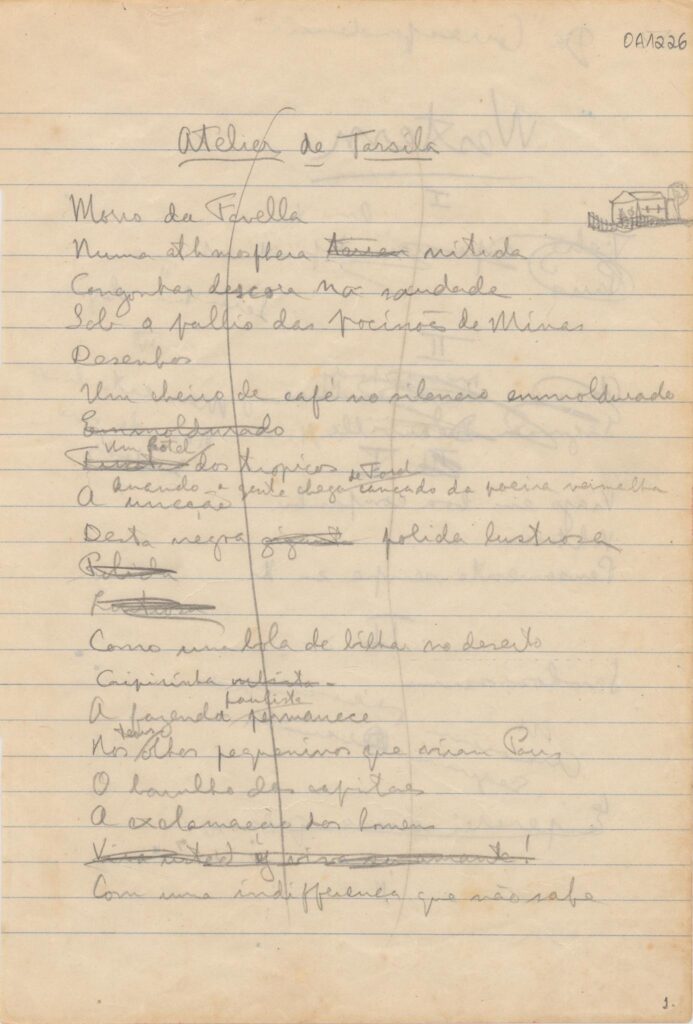 OA1226
Atelier de Tarsila
Morro da Favella
Numa athmosphera nitida
Congonhas descora na saudade
Sob o pallio das procissões de Minas
Desenhos
Um cheiro de café no silencio emmoldurado
Emmoldurado
Um hotel
dos tropicos
Quando a gente chega cançado de Ford da poeira vermelha
A uncção
Desta negra polida lustrosa
Polida
Lustrosa
Como uma bola de bilhar no deserto
Caipirinha
A fazenda paulista permanece
Nos teus olhos pequeninos que viram Paris
O barulho das capitaes
A exclamação dos homens
Viva usted y viva su amante!
Com uma indifferença que não sabe
1.